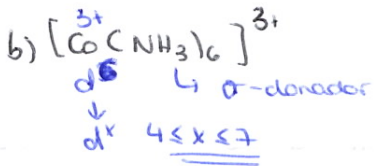 b) [Co(NH3)6]3+
3+
d6 ↳ σ-donador
↓
dx 4 ≤ x ≤ 7